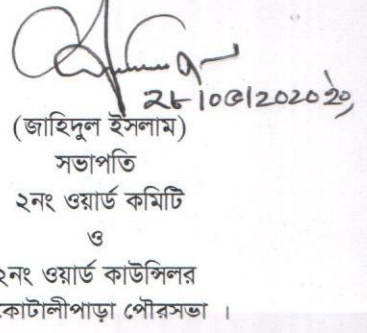 (জাহিদুল ইসলাম)
সভাপতি
২নং ওয়ার্ড কমিটি
ও
২নং ওয়ার্ড কাউন্সিলর
কোটালীপাড়া পৌরসভা ।